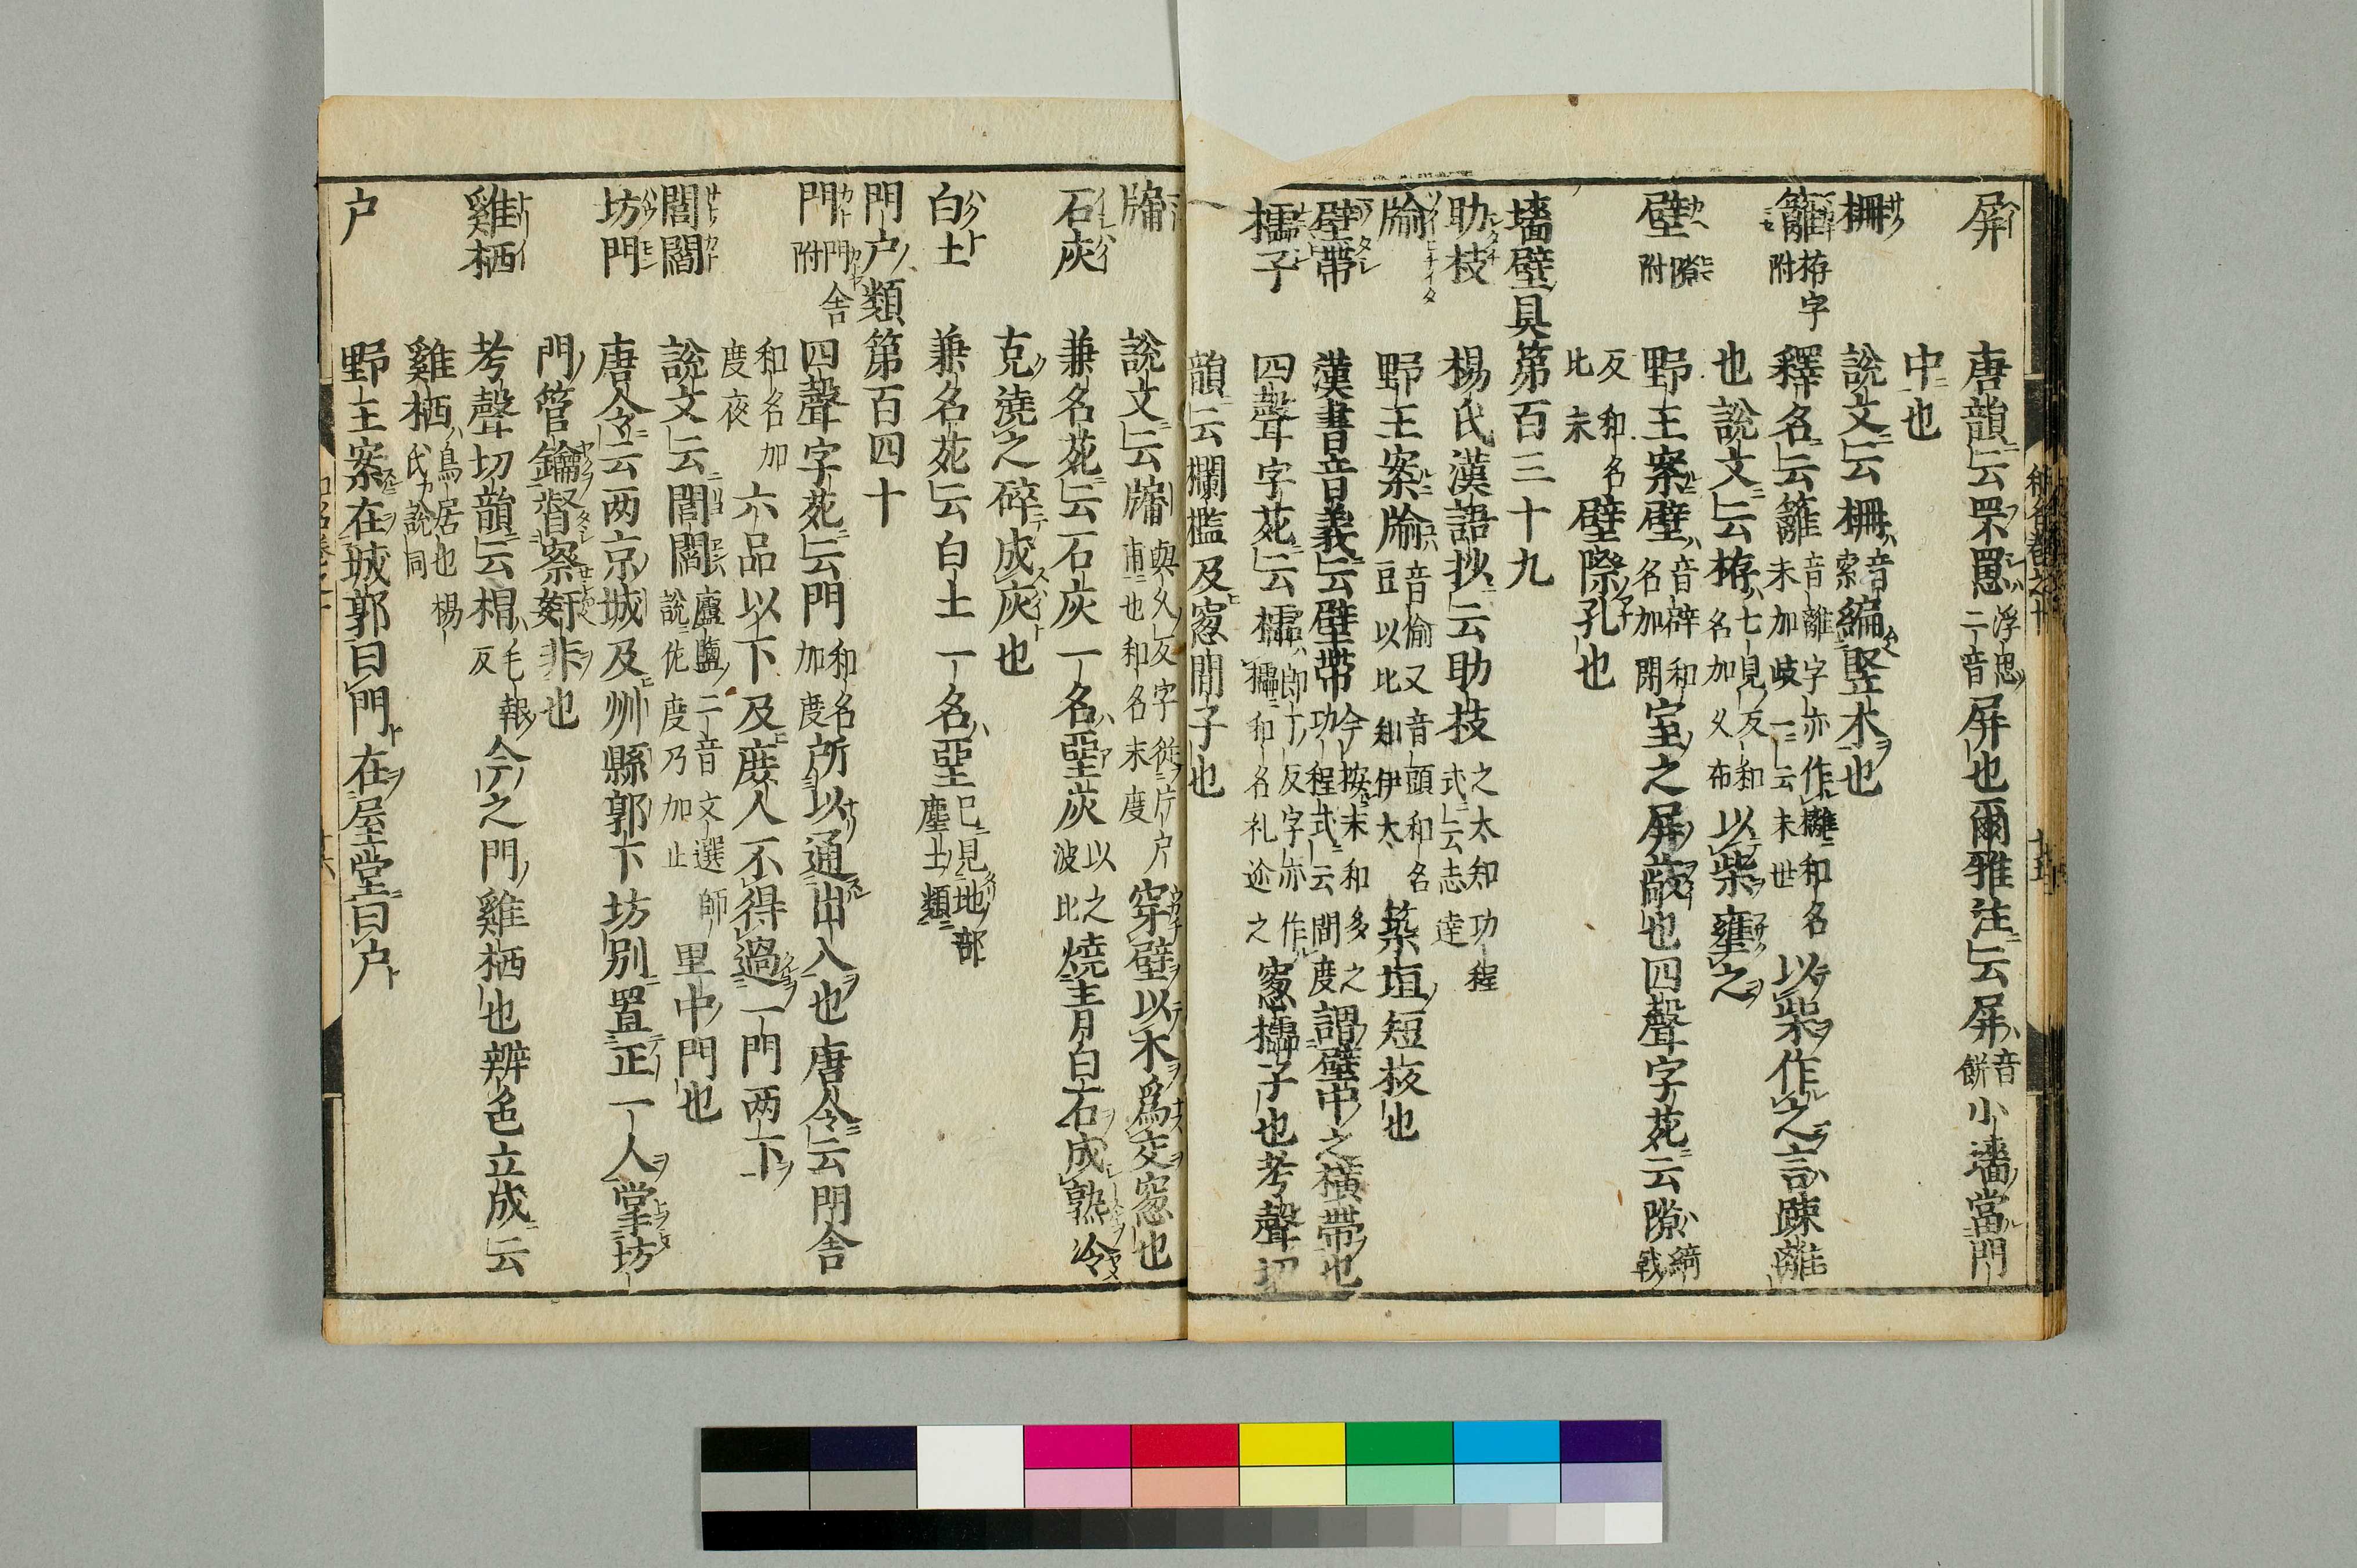 屏 唐韻云罘罳浮思二音屏也爾雅注云屏音餅小墻當門
中也
柵 說文云柵音索編竪木也
籬栫字附 釋名云籬音離字亦作㰚和名末加岐一云末世以柴作之言踈離
也說文云栫七見反和名加久布以柴壅之
壁隙附 野王案壁音辟和名加閉室之屏蔽也四聲字苑云隙綺戟
反和名比末壁際孔也
墻壁具第百三十九
助枝 楊氏漢語抄云助枝之太知功程式云志達
牏 野王案牏音偷又音頭和名豆以比知伊太築垣短板也
壁帶 漢書音義云壁帶今按末和多之功程式云間度謂壁中之橫帶也
欞子 四聲字苑云欞郎丁反字亦作櫺和名礼迩之窻欞子也考聲切
韻云欄檻及窻間子也
牖 說文云牖與久反字從片户甫也和名末度穿壁以木爲交窻也
石灰 兼名苑云石灰一名堊灰以之波比燒青白石成熟冷
克澆之碎成灰也
白土 兼名苑云白土一名堊已見地部塵土類
門户類第百四十
門門舍附 四聲字苑云門和名加度所以通出入也唐令云門舍
和名加度夜六品以下及庶人不得過一門两下
閻閭 說文云閻閭廬鹽二音文選師說佐度乃加止里中門也
坊門 唐令云两京城及州縣郭下坊別置正一人掌坊
門管鑰督察奸非也
雞栖 考聲切韻云楣毛報反今之門雞栖也辨色立成云
雞栖鳥居也楊氏說同
户 野王案在城郭曰門在屋堂曰户